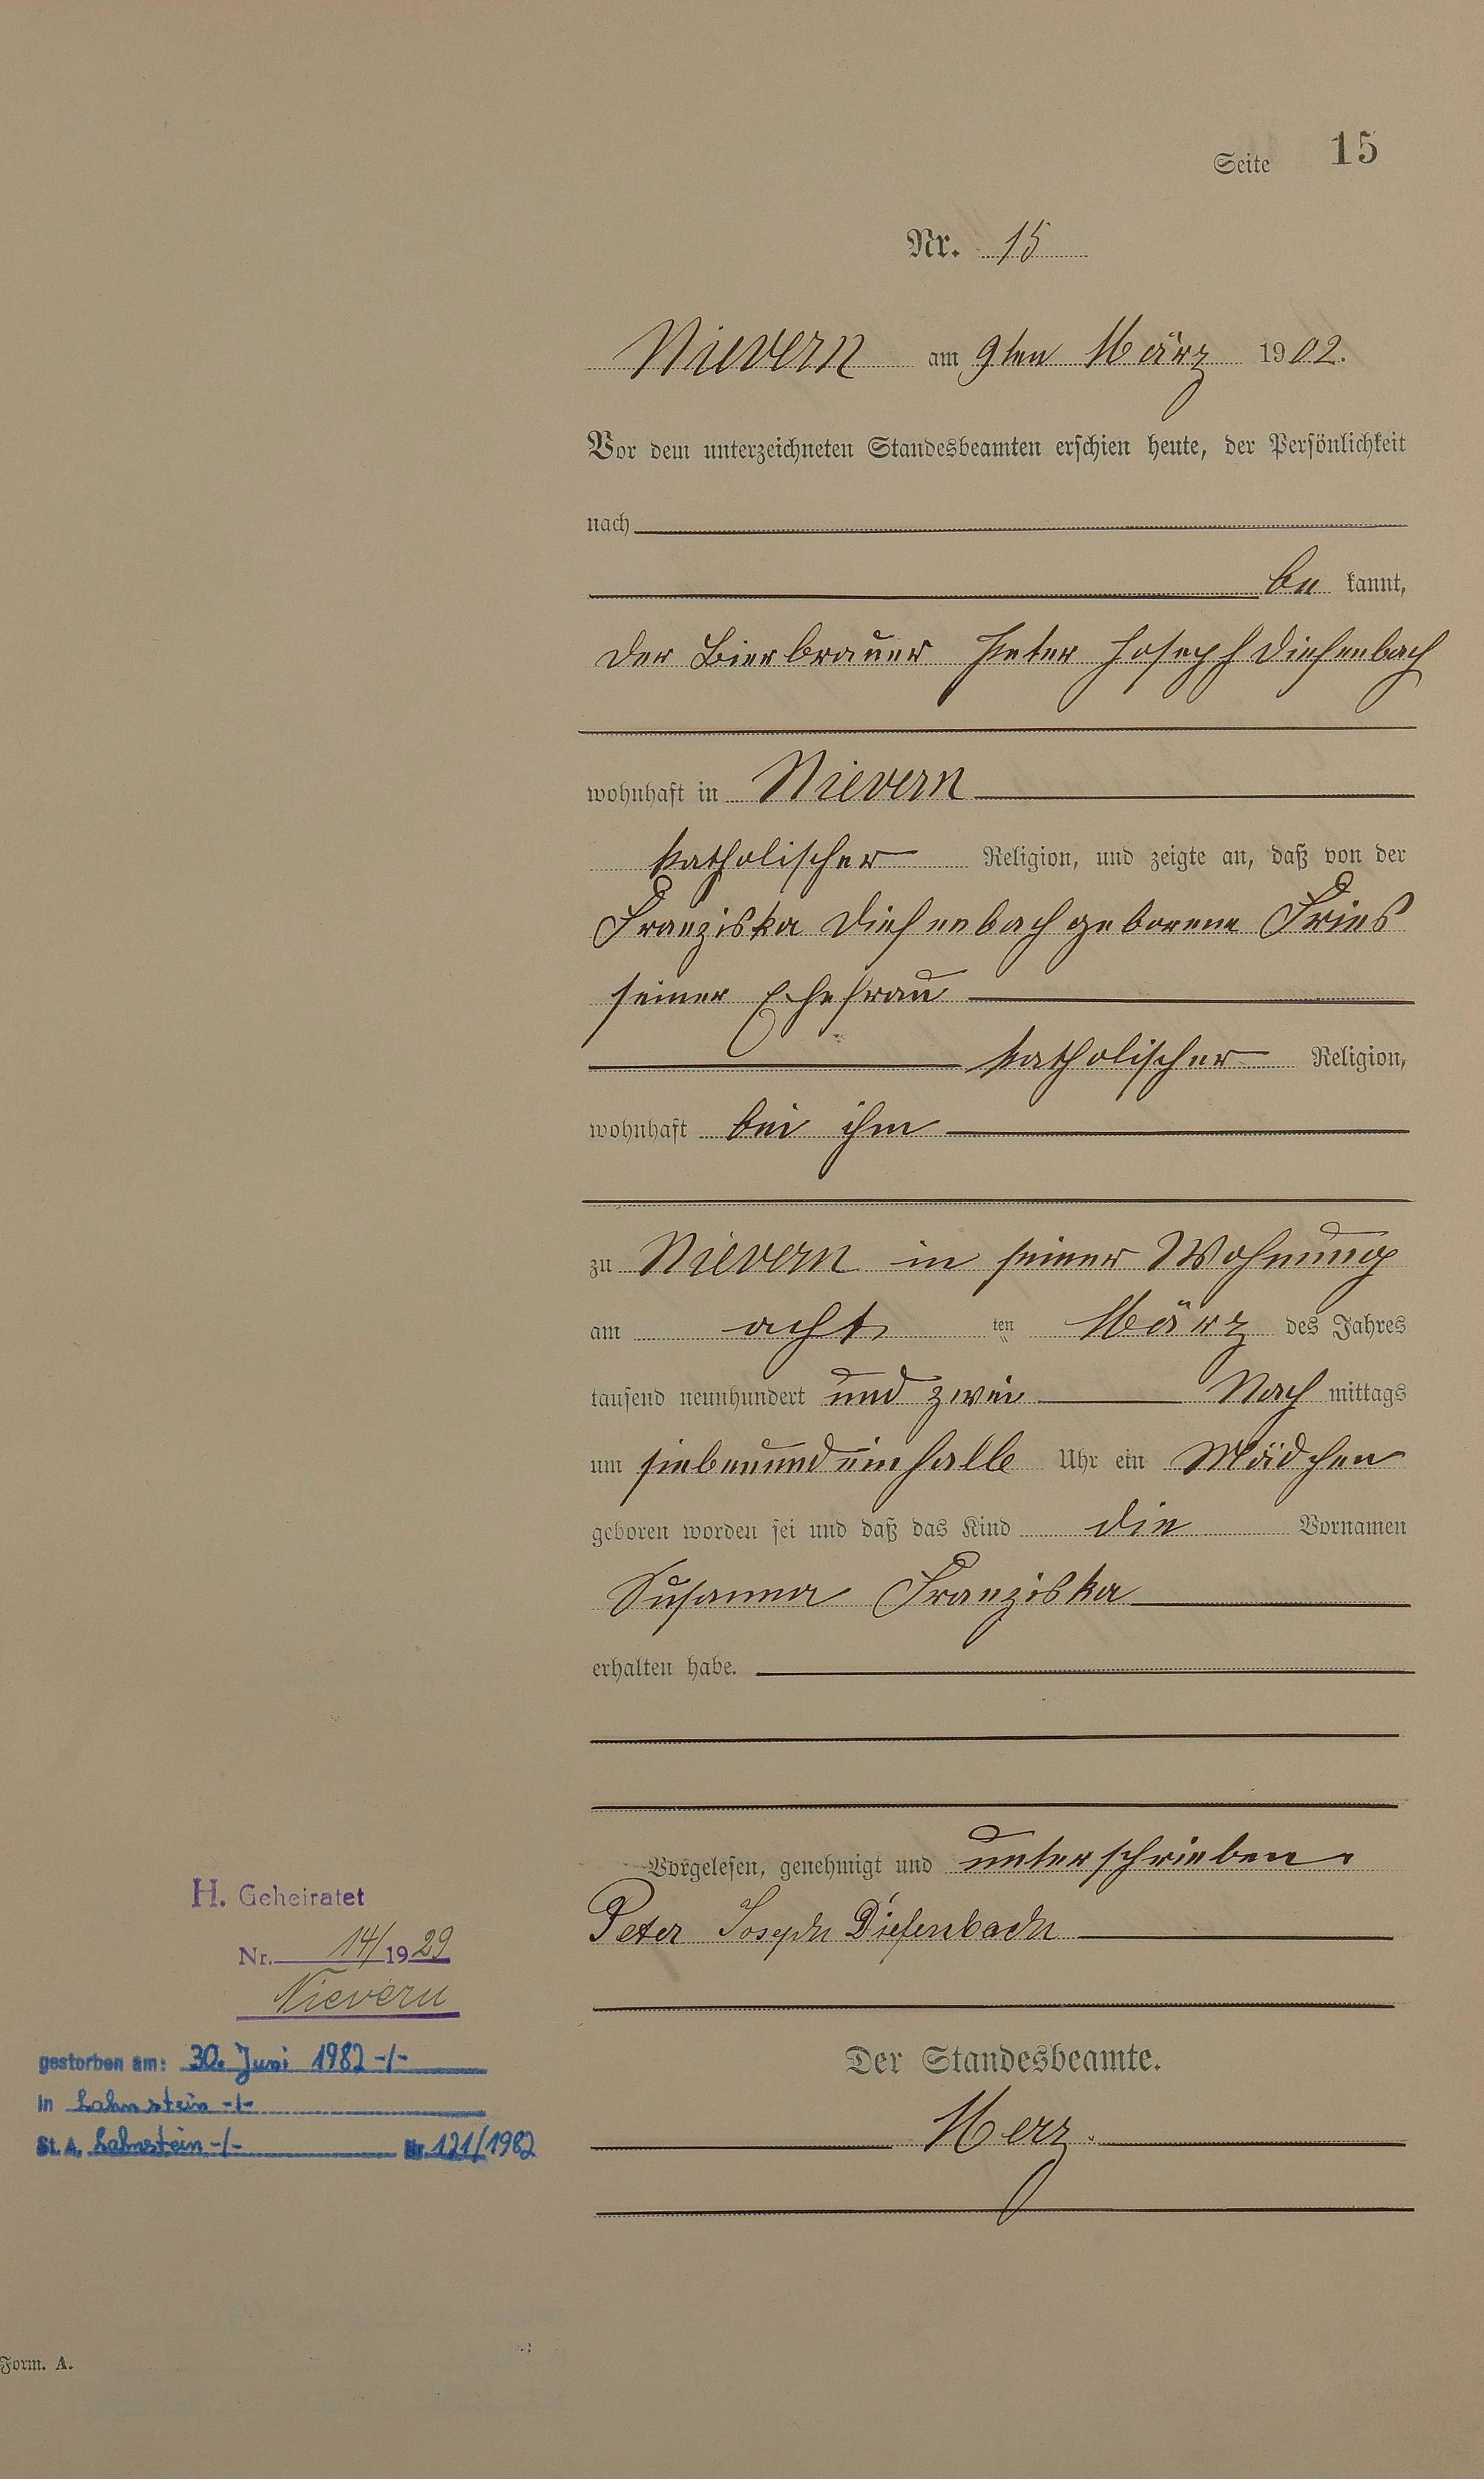 Seite 15
Nr. 15
Nievern am 9ten März 1902.
Vor dem unterzeichneten Standesbeamten erschien heute, der Persönlichkeit
nach
be kannt,
der Bierbrauer Peter Joseph Diefenbach
wohnhaft in Nievern
katholischer Religion, und zeigte an, daß von der
Franziska Diefenbach geborene Fries
seiner Ehefrau
katholischer Religion,
wohnhaft bei ihm
zu Nievern in seiner Wohnung
am acht ten März des Jahres
tausend neunhundert und zwei Nach mittags
um siebenundeinhalb Uhr ein Mädchen
geboren worden sei und daß das Kind die Vornamen
Susanna Franziska
erhalten habe.
Vorgelesen, genehmigt und unterschrieben.
Peter Joseph Diefenbach
Der Standesbeamte.
Herz.
H. Geheiratet
Nr. 14/1929
Nievern
gestorben am: 30. Juni 1982 -/-
in Lahnstein -/-
St. A. Lahnstein -/- Nr. 121/1982
Form. A.